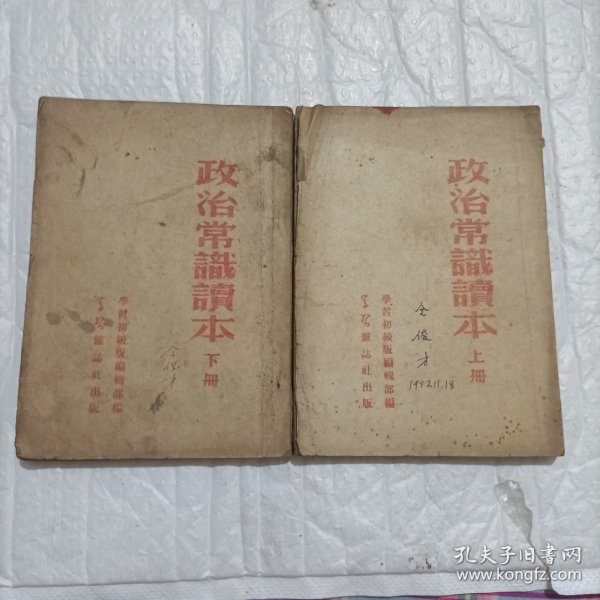 政治常識讀本
下册
學習初級版編輯部編
學習雜誌社出版
政治常識讀本
上册
學習初級版編輯部編
學習雜誌社出版
仝俊才
1952.11.18
仝俊才
孔夫子旧书网
www.kongfz.com